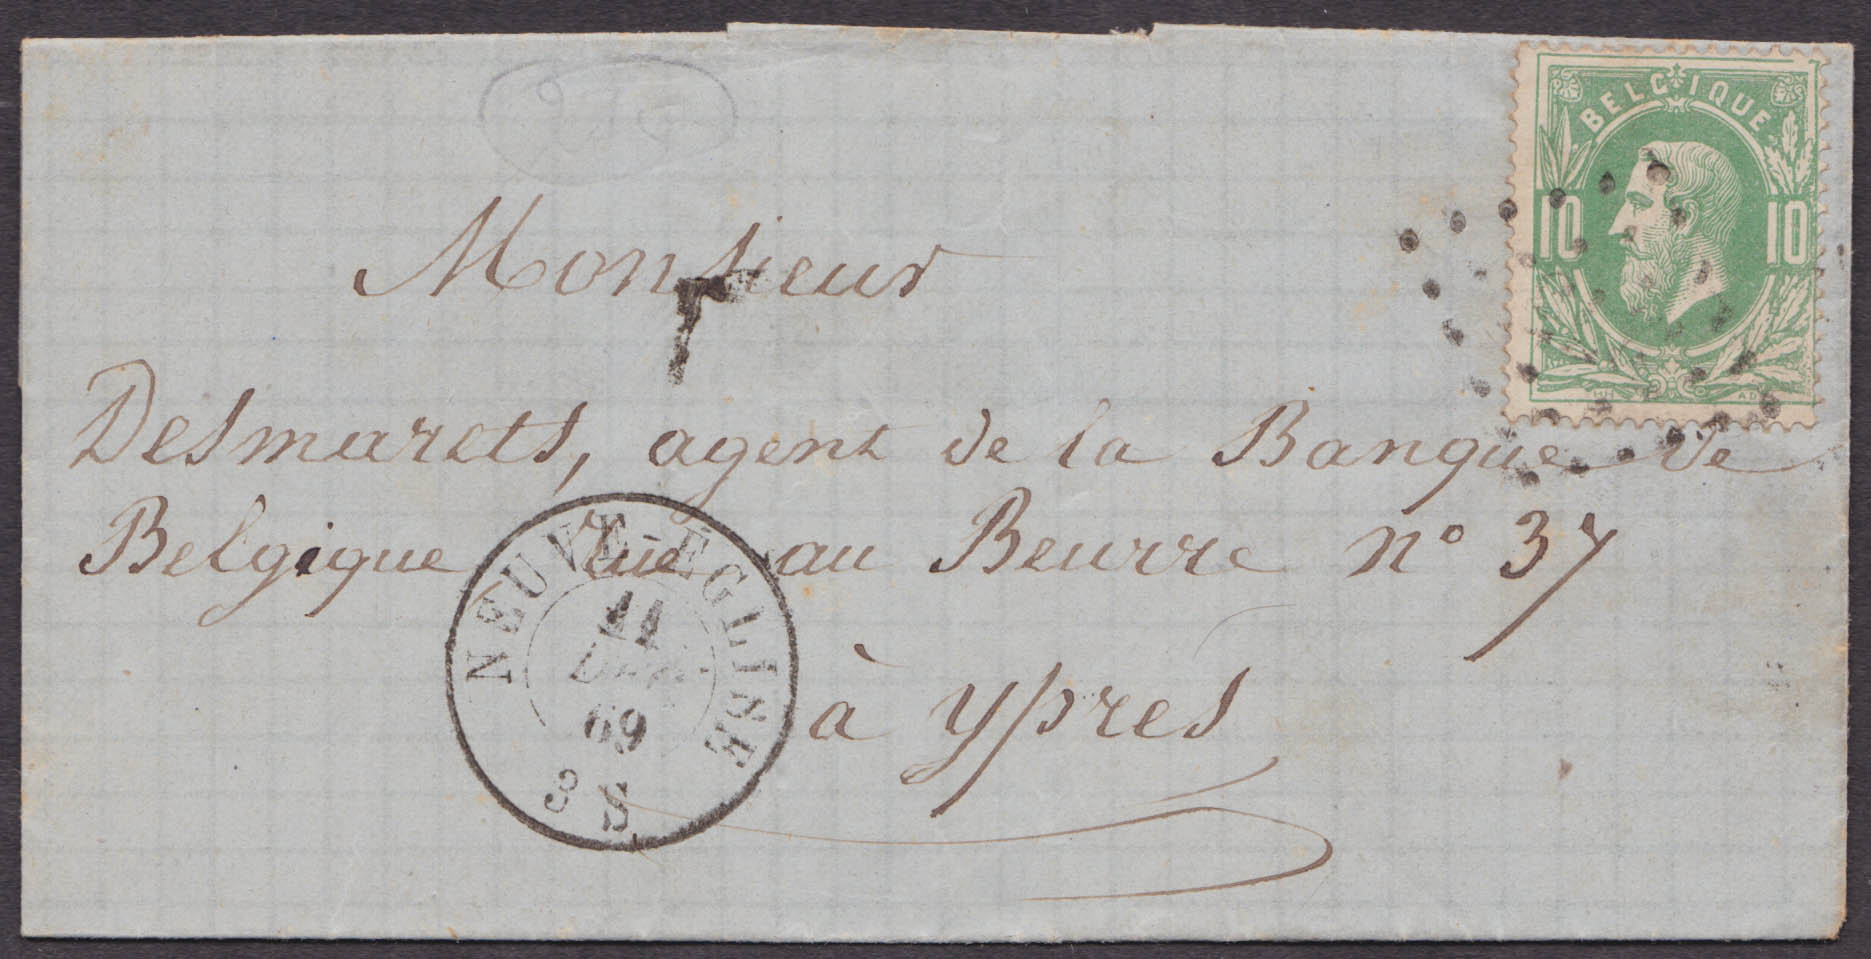 BELGIQUE
10 10
Monsieur
T
Desmarets, agent de la Banque de
Belgique Rue au Beurre n° 37
à Ypres
NEUVE-EGLISE
11
DEC
69
3 S